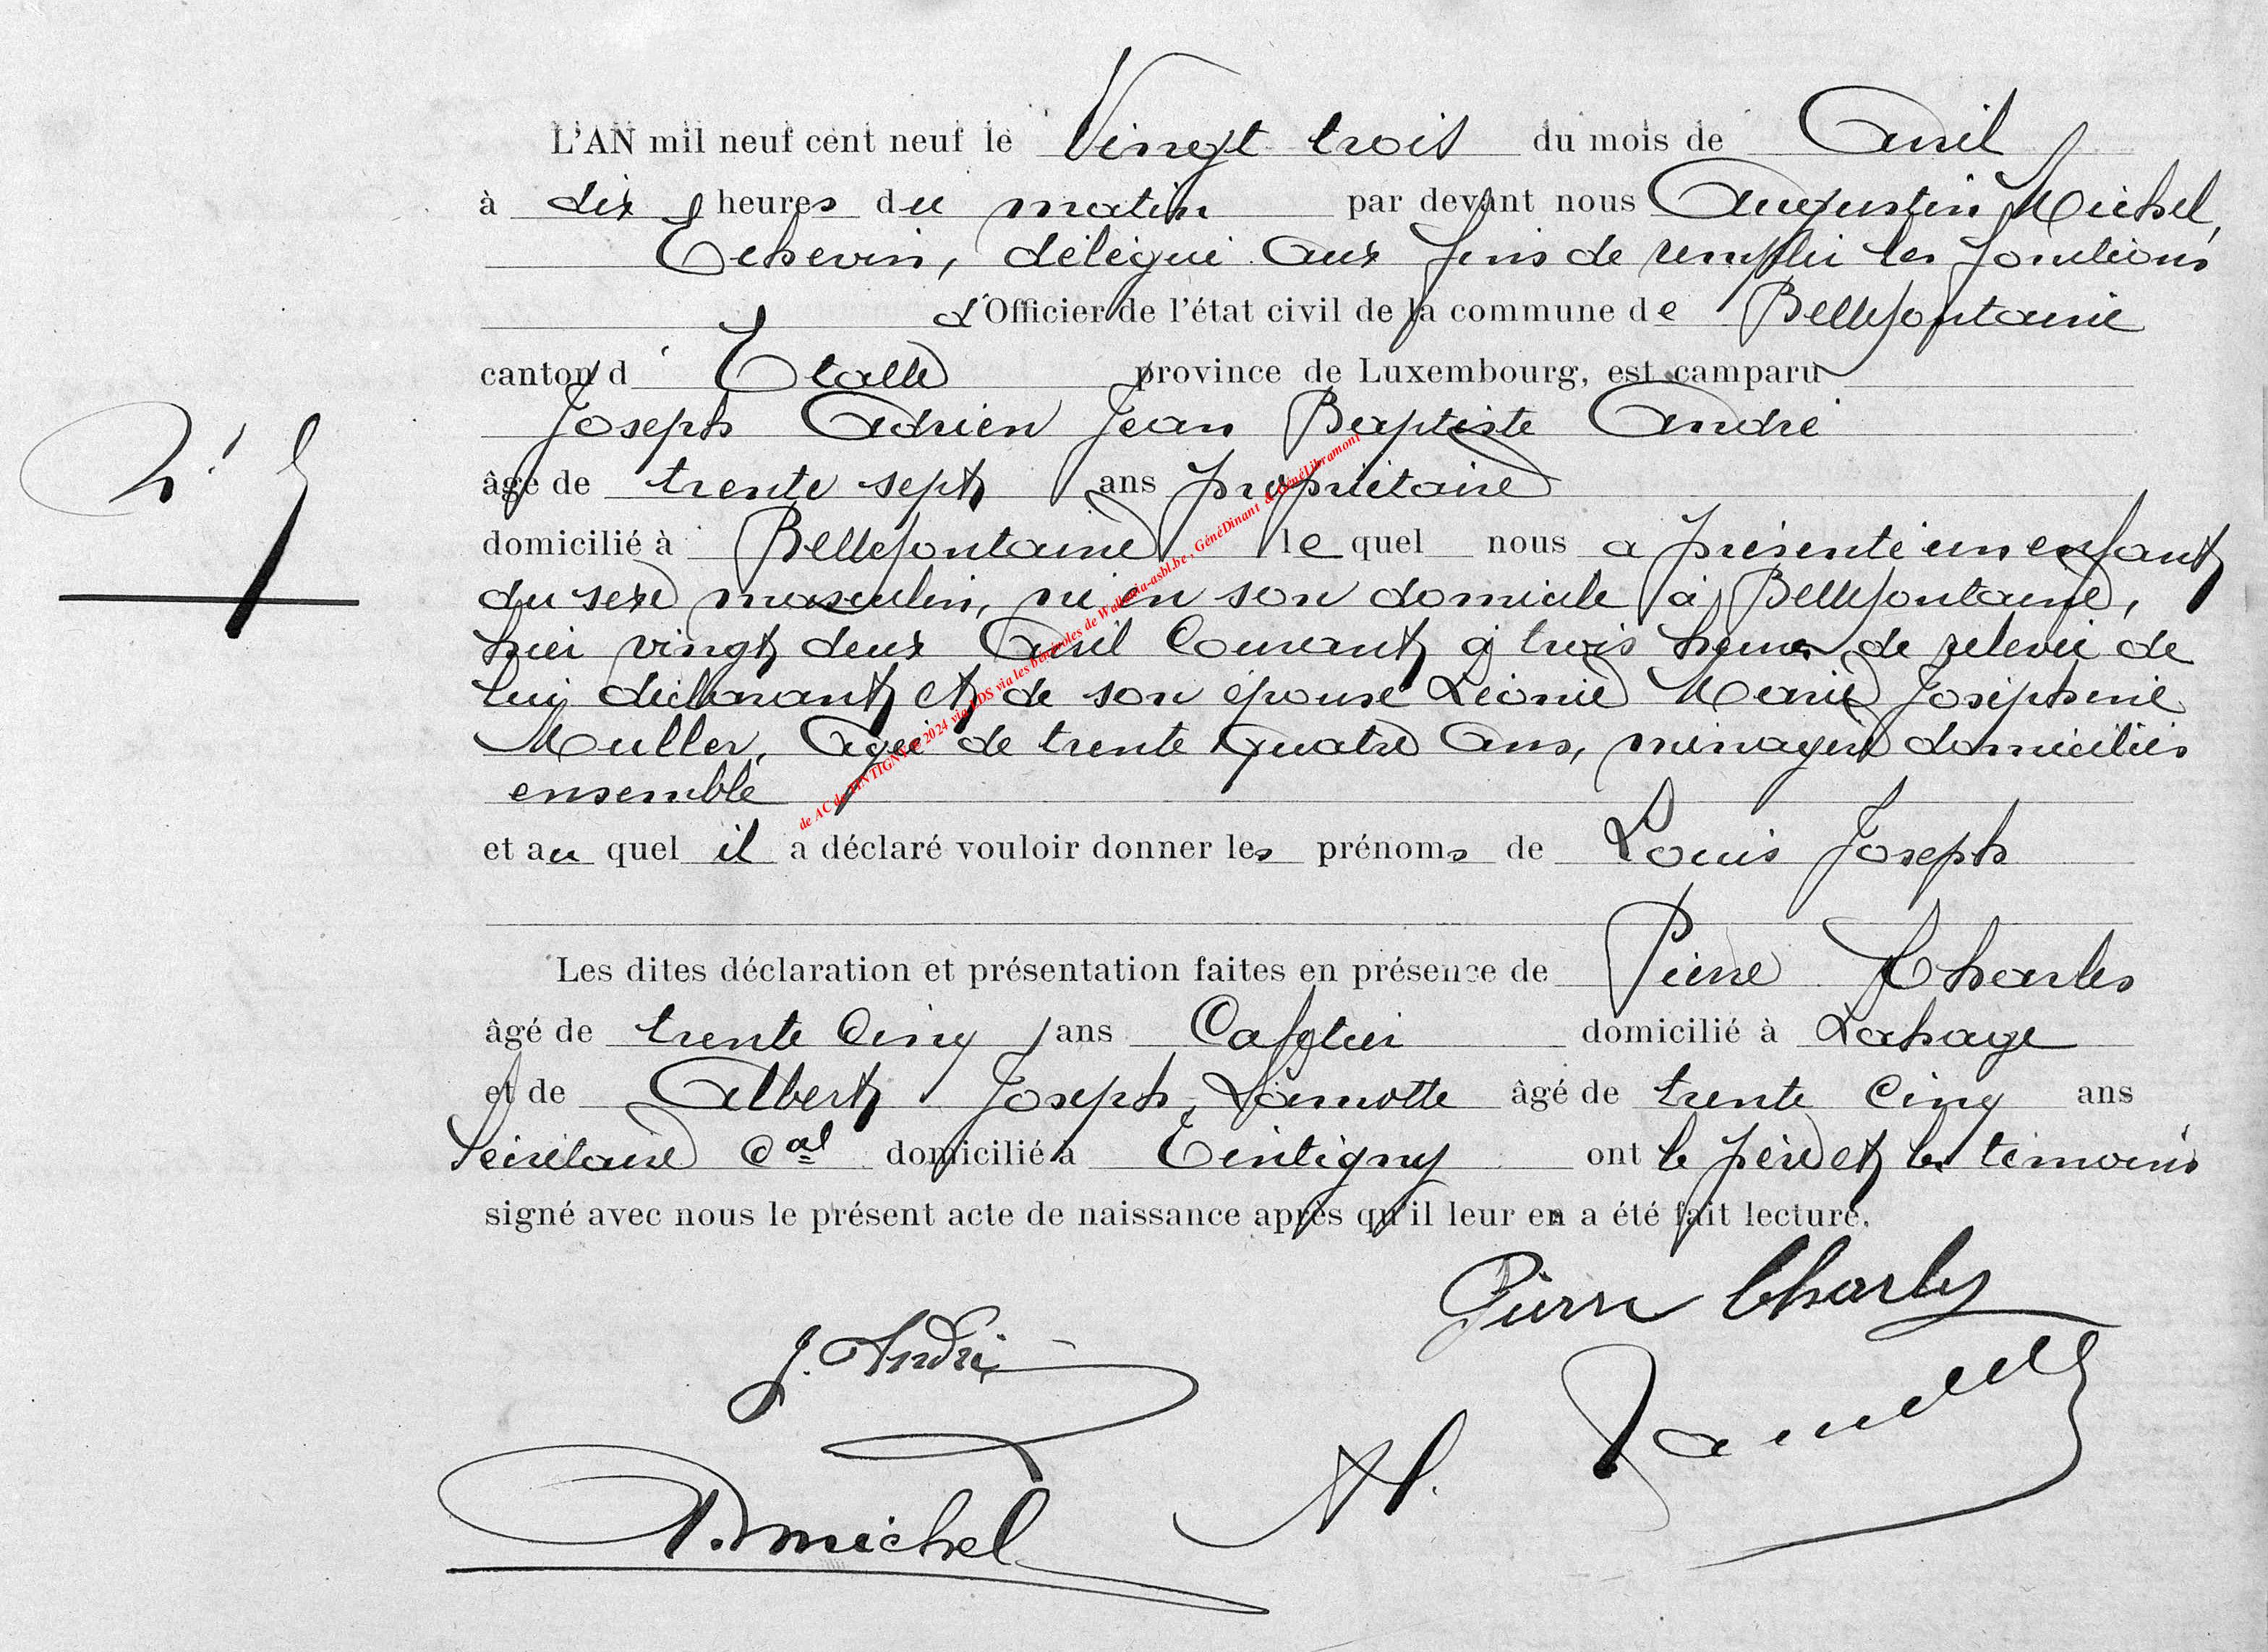 L'AN mil neuf cent neuf le Vingt trois du mois de Avril
à dix heures du matin par devant nous Augustin Michel,
Echevin, délégué aux fins de remplir les fonctions
d'Officier de l'état civil de la commune de Bellefontaine
canton d'Etalle province de Luxembourg, est camparu
Joseph Adrien Jean Baptiste André
âgé de trente sept ans propriétaire
domicilié à Bellefontaine lequel nous a présenté un enfant
du sexe masculin, né en son domicile à Bellefontaine,
hier vingt deux Avril Courant à trois heures de relevée de
lui déclarant et de son épouse Léonie Marie Joséphine
Muller, Agée de trente quatre Ans, ménagère domiciliés
ensemble
et au quel il a déclaré vouloir donner les prénoms de Louis Joseph
Les dites déclaration et présentation faites en présence de Pierre Charles
âgé de trente Cinq ans Cafetier domicilié à Lahage
et de Albert Joseph Lamotte âgé de trente Cinq ans
Secrétaire Cal domicilié à Tintigny ont le père et les témoins
signé avec nous le présent acte de naissance après qu'il leur en a été fait lecture.
N° 5
de AC de TINTIGNY © 2024 via LDS via les bénévoles de Wallonia-asbl.be, GénéDinant & GénéLibramont
Pierre Charles
J. André
A. Michel